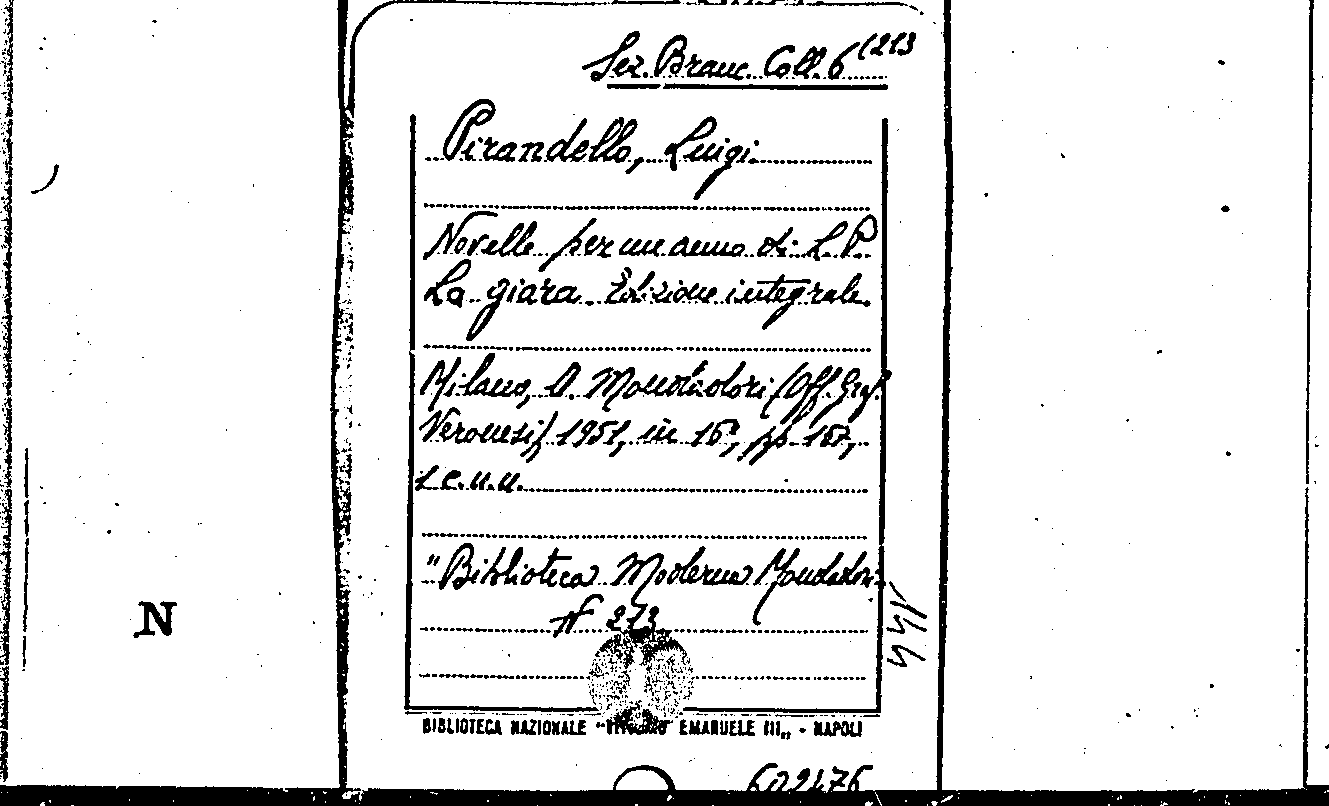 Sez. Branc. Coll. 6 (213
Pirandello, Luigi.
Novelle per un anno di L. P.
La giara. Edizione integrale.
Milano, A. Mondadori (Off. Graf.
Veronesi), 1951, in 16°, pp. 167,
"Biblioteca Moderna Mondadori
N° 273
N
BIBLIOTECA NAZIONALE "VITTORIO EMANUELE III„ - NAPOLI
602476